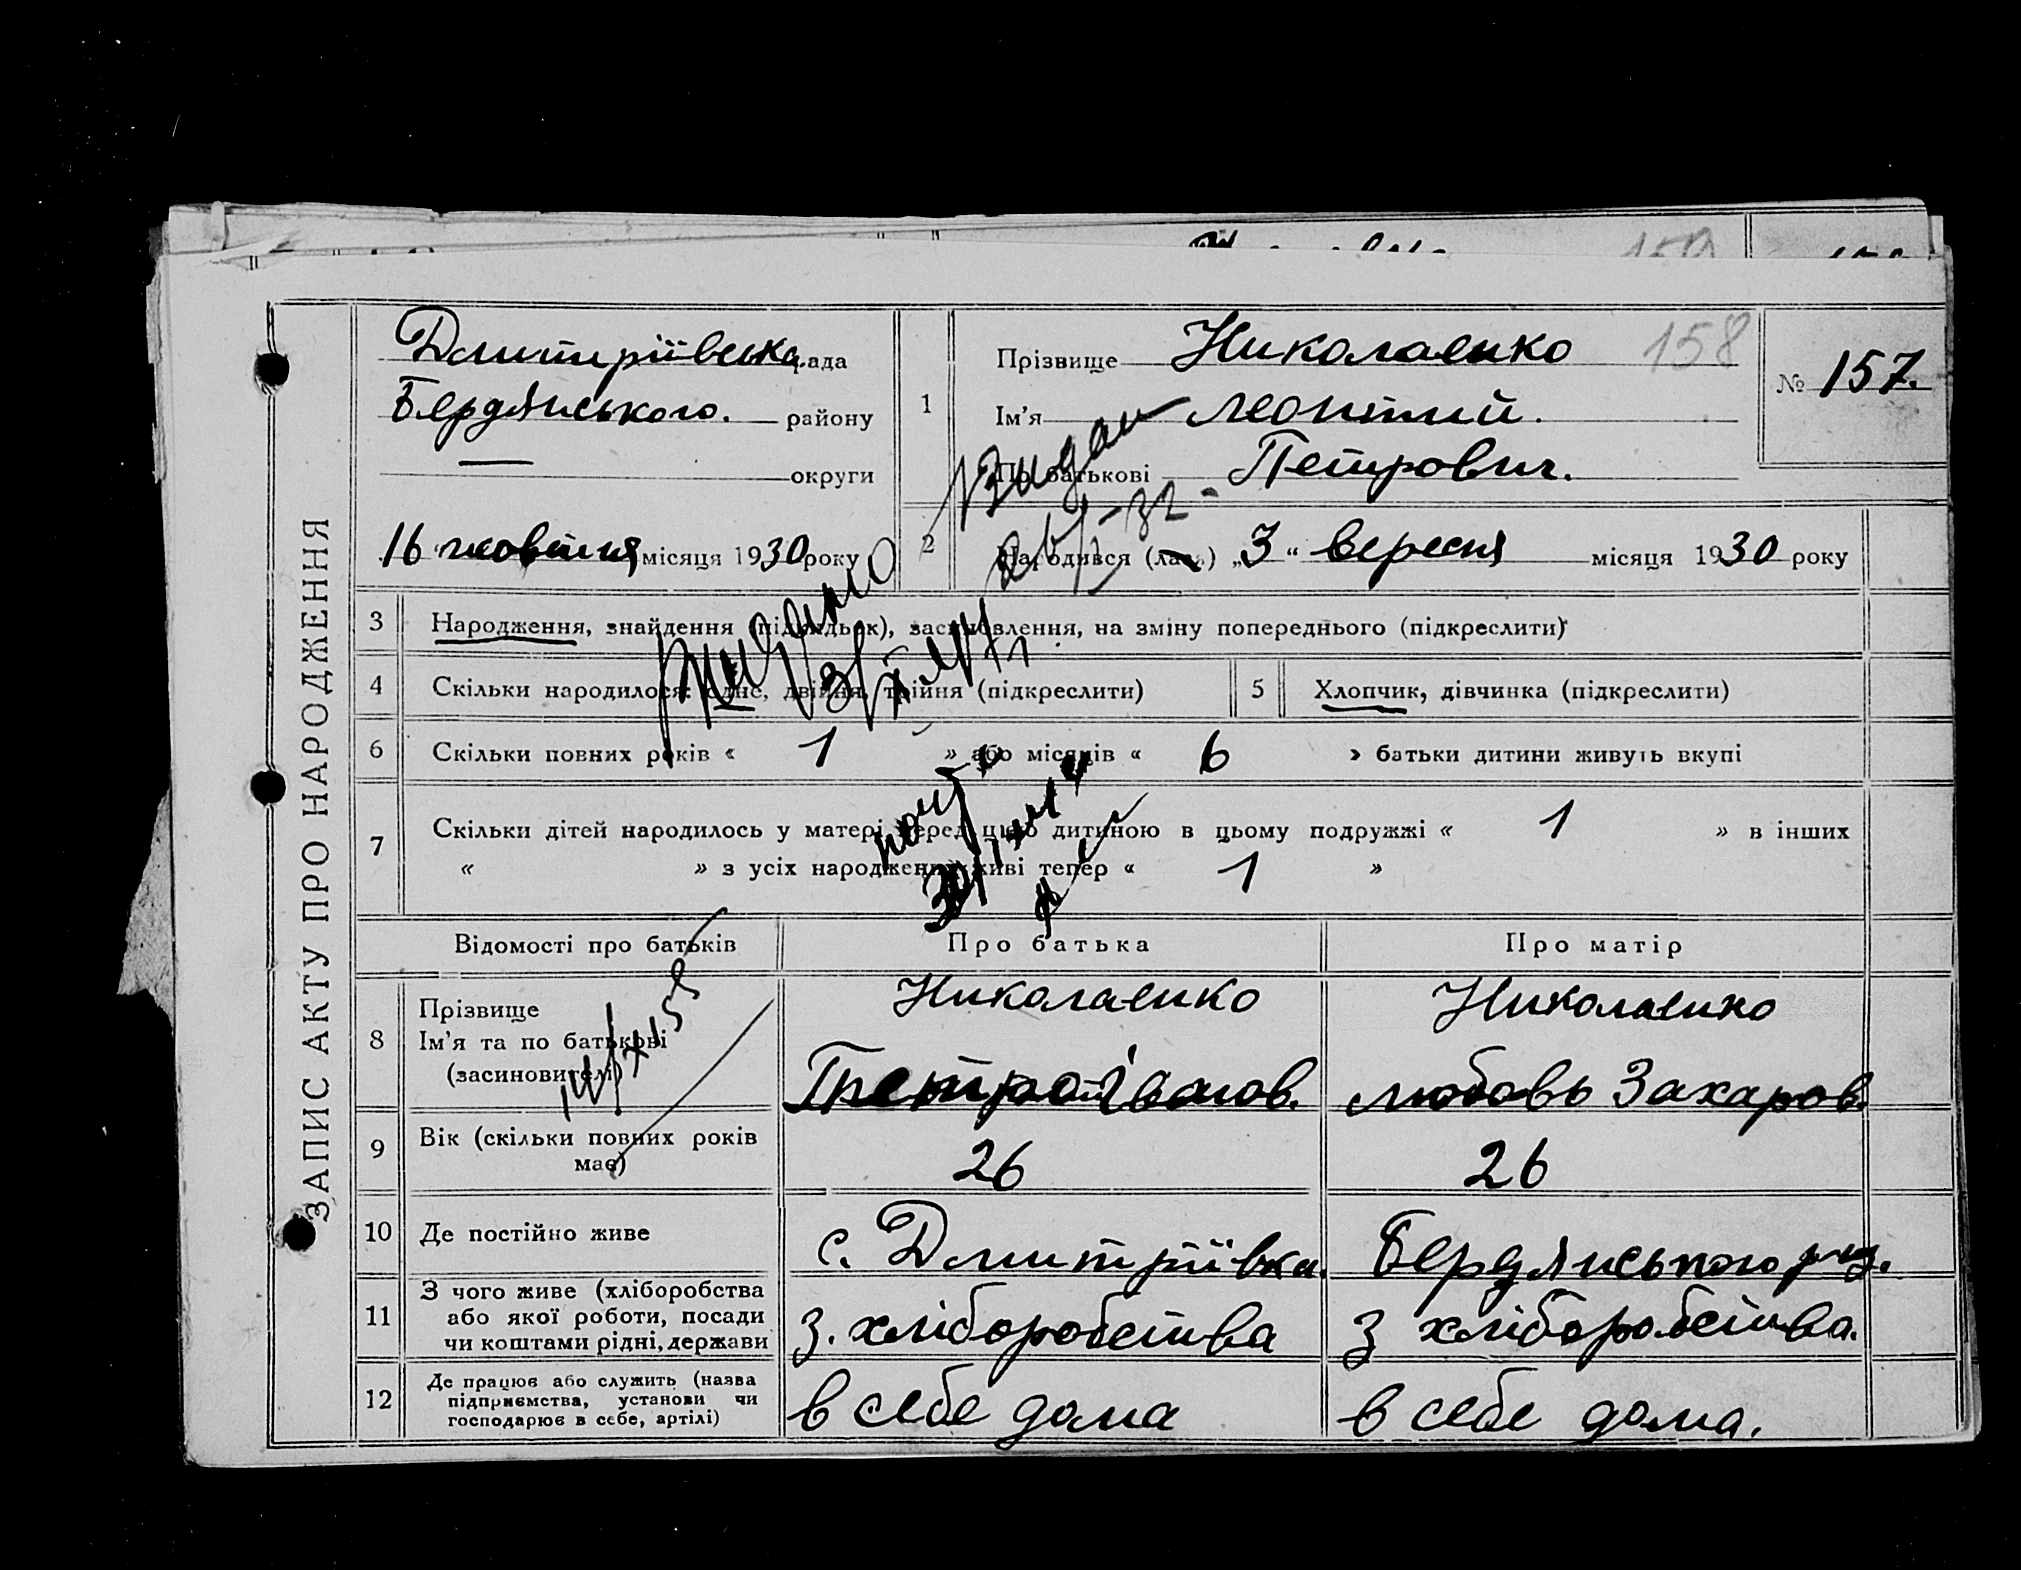 ЗАПИС АКТУ ПРО НАРОДЖЕННЯ
Дмитріївська рада
Бердянського. району
округи
16 жовтня місяця 1930 року
1
Прізвище Николаенко 158
Ім'я Леонтий.
По батькові Петрович.
№ 157.
2
Народився (лась) „3“ вересня місяця 1930 року
3 Народження, знайдення (підкидьок), засиновлення, на зміну попереднього (підкреслити)
4 Скільки народилося: одне, двійня, трійня (підкреслити)
5 Хлопчик, дівчинка (підкреслити)
6 Скільки повних років « 1 » або місяців « 6 » батьки дитини живуть вкупі
7 Скільки дітей народилось у матері перед цією дитиною в цьому подружжі « 1 » в інших
« » з усіх народжених живі тепер « 1 »
Відомості про батьків Про батька Про матір
8 Прізвище Николаенко Николаенко
Ім'я та по батькові
(засиновителі) Петро Іванов. Любовь Захаров.
9 Вік (скільки повних років
має) 26 26
10 Де постійно живе с. Дмитріївка. Бердянського
11 З чого живе (хліборобства
або якої роботи, посади
чи коштами рідні, держави з. хліборобства з хліборобства.
12 Де працює або служить (назва
підприємства, установи чи
господарює в себе, артілі) в себе дома в себе дома.